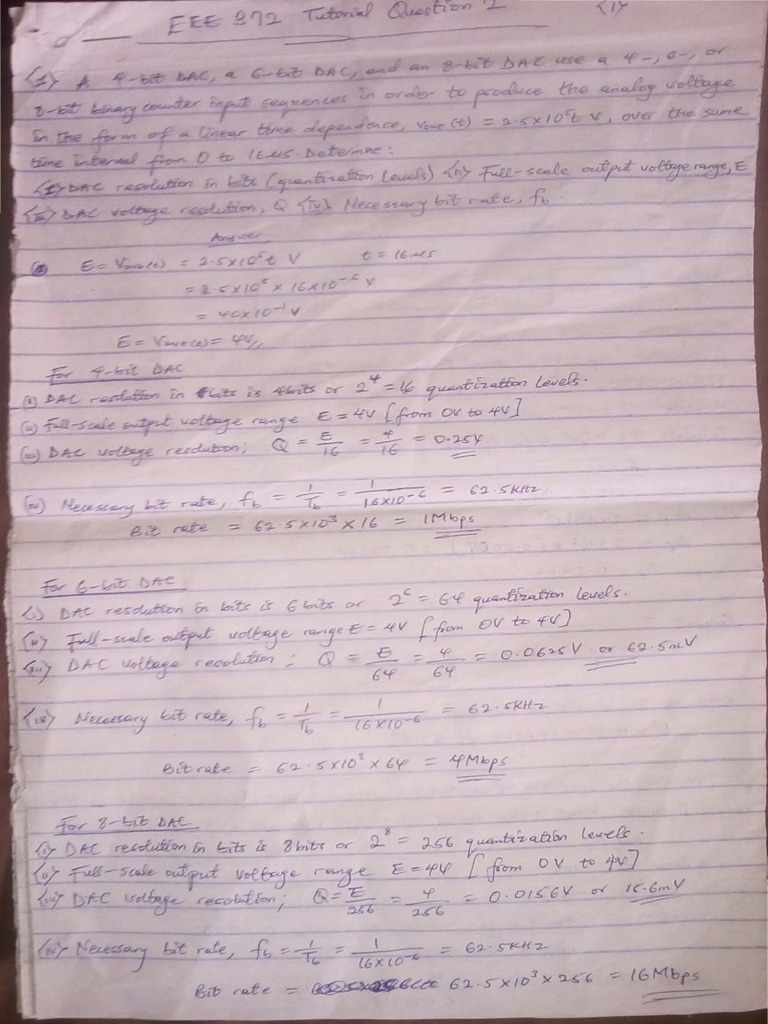 EEE 372 Tutorial Question 2 <1>
<1> A 4-bit DAC, a 6-bit DAC, and an 8-bit DAC use a 4-, 6-, or
8-bit binary counter input sequences in order to produce the analog voltage
in the form of a linear time dependence, Vout(t) = 2.5x10⁵t V, over the same
time interval from 0 to 16μs. Determine:
<i> DAC resolution in bits (quantization levels) <ii> Full-scale output voltage range, E
<iii> DAC voltage resolution, Q <iv> Necessary bit rate, fb.
Answer
E = Vout(t) = 2.5x10⁵t V t = 16μs
= 2.5x10⁵ x 16x10⁻⁶ V
= 40x10⁻¹ V
E = Vout(t) = 4V
For 4-bit DAC
(i) DAC resolution in bits is 4bits or 2⁴ = 16 quantization levels.
(ii) Full-scale output voltage range E = 4V [from 0V to 4V]
(iii) DAC voltage resolution; Q = E/16 = 4/16 = 0.25V
(iv) Necessary bit rate, fb = 1/Tb = 1/16x10⁻⁶ = 62.5KHz
Bit rate = 62.5x10³ x 16 = 1Mbps
For 6-bit DAC
<i> DAC resolution in bits is 6bits or 2⁶ = 64 quantization levels.
<ii> Full-scale output voltage range E = 4V [from 0V to 4V]
<iii> DAC voltage resolution; Q = E/64 = 4/64 = 0.0625V or 62.5mV
<iv> Necessary bit rate, fb = 1/Tb = 1/16x10⁻⁶ = 62.5KHz
Bit rate = 62.5x10³ x 64 = 4Mbps
For 8-bit DAC
<i> DAC resolution in bits is 8bits or 2⁸ = 256 quantization levels.
<ii> Full-scale output voltage range E = 4V [from 0V to 4V]
<iii> DAC voltage resolution; Q = E/256 = 4/256 = 0.0156V or 15.6mV
<iv> Necessary bit rate, fb = 1/Tb = 1/16x10⁻⁶ = 62.5KHz
Bit rate = 62.5x10³ x 256 = 16Mbps